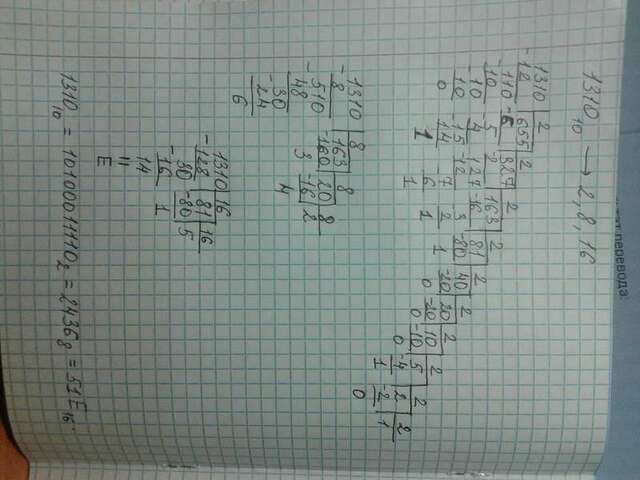 1310₁₀ → 2, 8, 16
перевода:
1310 | 2
-12 655 | 2
-110 -6 327 | 2
-10 5 2 163 | 2
-10 4 127 16 81 | 2
10 -15 -12 3 -80 40 | 2
0 14 7 2 1 -40 20 | 2
1 -6 1 0 -20 10 | 2
1 0 -10 5 | 2
0 -4 2 | 2
1 -2 1
0
1310 | 8
-8 163 | 8
-510 -160 20 | 8
48 3 -16 2
-30 4
24
6
1310 | 16
-128 81 | 16
-30 -80 5
16 1
14
=
E
1310₁₀ = 10100011110₂ = 2436₈ = 51E₁₆.